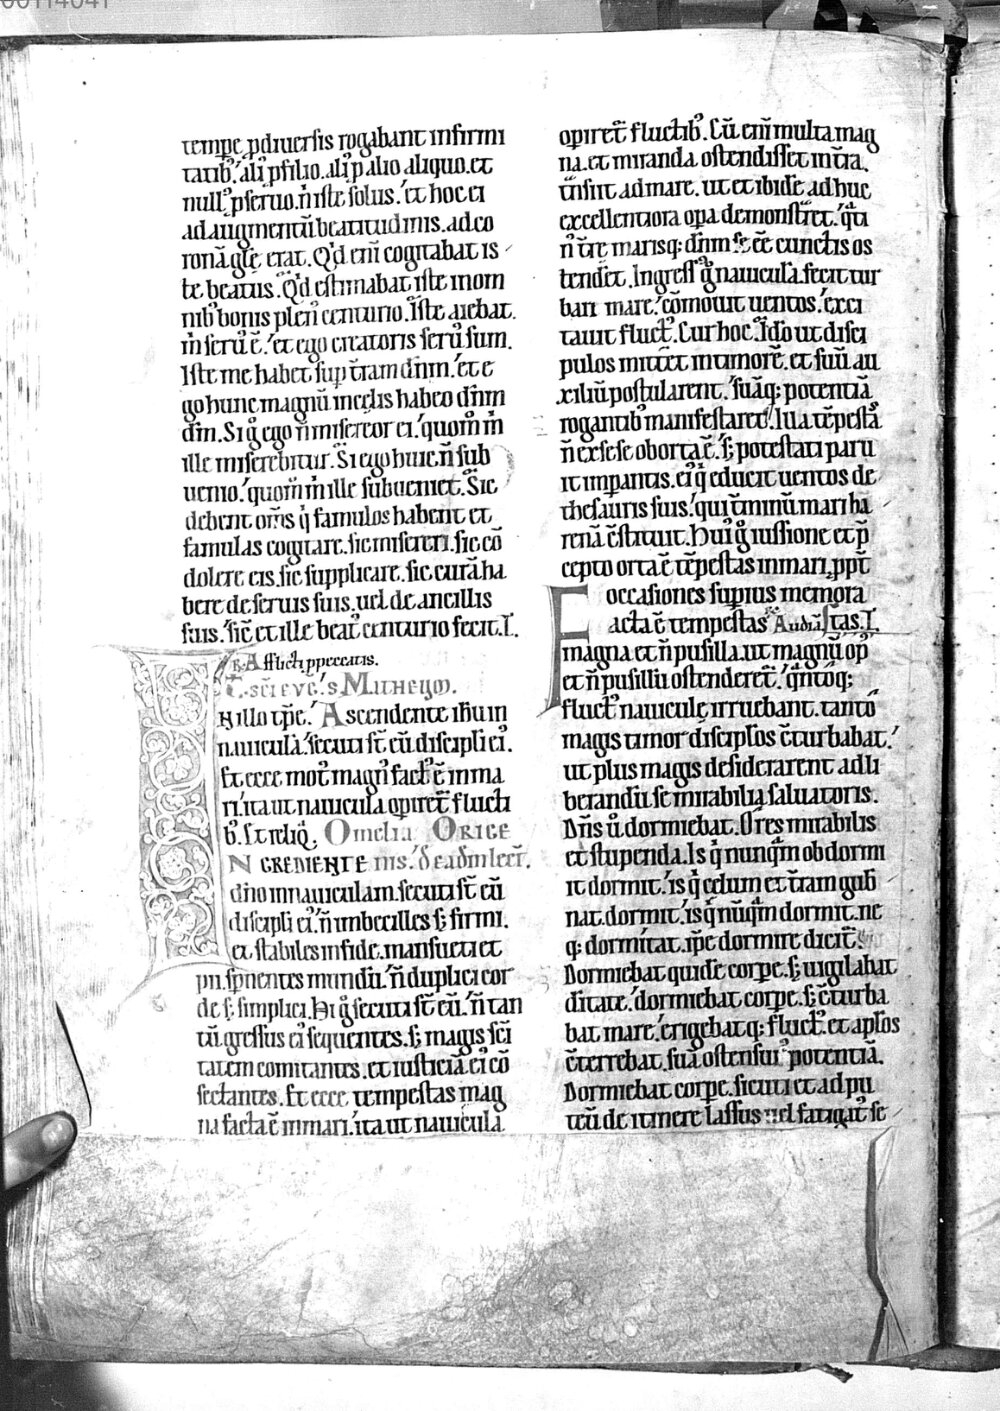 tempe ꝓ diuersis rogabant infirmi
tatib⁹. ali⁹ ꝓ filio. ali⁹ ꝓ alio aliquo. et
null⁹ ꝓ seruo. n̄ iste solus. et hoc ei
ad augmentū beatitudinis. ad co
ronā glę erat. Qd̓ eni cogitabat is
te beatus. Qd̓ estimabat iste in om
nib⁹ bonis plen⁹ centurio. Iste aiebat.
m̓ seru⁹ ē. et ego creatoris seru⁹ sum.
Iste me habet sup̄ t̄ram dn̄m. et e
go hunc magnū in celis habeo dn̄m
dm̄. Si g̊ ego n̄ misereor ei. quom̄ m̓
ille miserebitur. Si ego huic n̄ sub
uenio. quom̄ m̓ ille subueniet. Sic
debent om̄s q̓ famulos habent et
famulas cogitare. sic misereri. sic cō
dolere eis. sic supplicare. sic curā ha
bere de seruis suis. uel de ancillis
suis. sic̄ et ille beat⁹ centurio fecit. I.
℟. Afflicti ꝑ peccatis.
sci euᵉ. s Matheum.
N illo tp̄e. Ascendente ihu in
nauiculā. secuti st̄ eū discipli ei⁹.
Et ecce mot⁹ magn⁹ fact⁹ ē in ma
ri. ita ut nauicula opiret̄ flucti
b⁹. Et reliq̄. Omelia Orige
N GREDIENTE nis. de eadm̄ lect̄.
dn̄o in nauiculam. secuti st̄ eū
discipli ei⁹. n̄ imbecilles sꝫ firmi.
et stabiles in fide. mansueti et
pii. sp̄nentes mundū. n̄ duplici cor
de sꝫ simplici. Hi g̊ secuti st̄ eū. n̄ tan
tū gressus ei⁹ sequentes. sꝫ magis sc̄i
tatem comitantes. et iusticiā ei⁹ cō
sectantes. Et ecce tempestas mag
na facta ē in mari. ita ut nauicula
opiret̄ fluctib⁹. Cū eni multa mag
na. et miranda ostendisset in t̄ra.
t̄nsiit ad mare. ut et ibidē adhuc
excellentiora oꝑa demonstret̄. q̄ti
n⁹ t̄re marisq; dn̄m se ē̄e cunctis os
tenderet. Ingress⁹ g̊ nauiculā. fecit tur
bari mare. cōmouit uentos. exci
tauit fluct⁹. Cur hoc. Ido ut disci
pulos mitt̄et in timorē. et suū au
xiliū postularent. suāq; potentiā
rogantib⁹ manifestaret. Ita tēpesta⁵
n̄ ex sese oborta ē. sꝫ potestati paru
it impantis. ei⁹ q̓ educit uentos de
thesauris suis. qui t̄minū mari ha
renā cōstituit. Hui⁹ g̊ iussione et p̄
cepto orta ē tēpestas in mari. ꝓpt̄
occasiones superius memora
Facta ē tempestas tas. I.
magna et n̄ pusilla. ut magnū op⁹
et n̄ pusillū ostenderet̄. q̄ntoq;
fluct⁹ nauiculę irruebant. tanto
magis timor disciplos c̄turbabat.
ut plus magis desiderarent ad li
berandū se mirabilia saluatoris.
Dn̄s ū dormiebat. O res mirabilis
et stupenda. Is q̓ nunqm̄ obdormi
it dormit. is q̓ celum et t̄ram gub̄
nat. dormit. is q̓ nūqm̄ dormit. ne
q; dormitat. ip̄e dormire dicit̄.
Dormiebat quidē corꝑe. sꝫ uigilabat
ditate. dormiebat corꝑe. sꝫ c̄turba
bat mare. erigebatq; fluct⁹. et aplos
c̄terrebat. suā ostensur⁹ potentiā.
Dormiebat corꝑe. sicuti et ad pu
teū de itinere lassus uel fatigat⁹ se